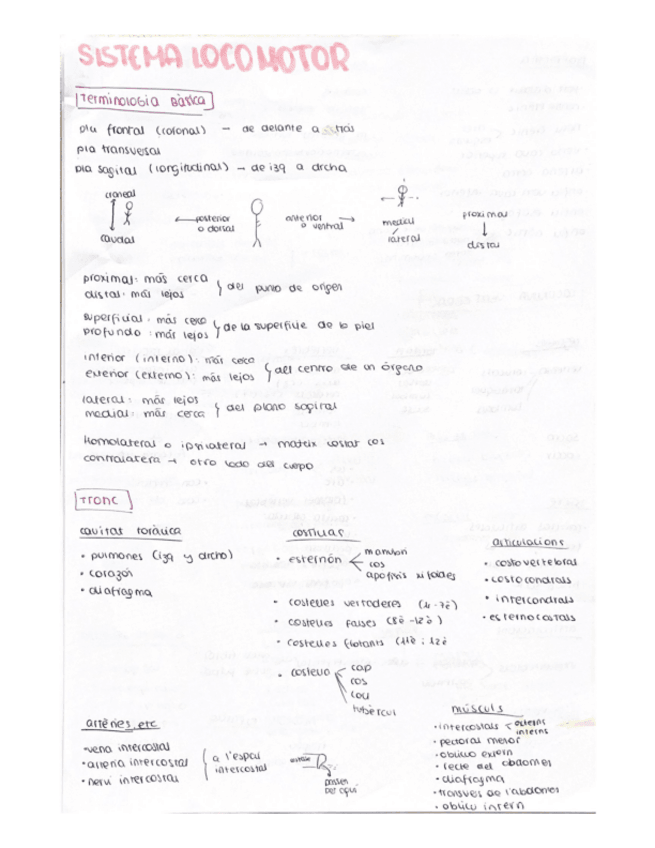 SISTEMA LOCOMOTOR
Terminologia Bàsica
pla frontal (coronal) - de delante a atrás
pla transversal
pla sagital (longitudinal) → de izq a drcha
craneal
caudal
posterior
o dorsal
anterior
o ventral
medial
lateral
proximal
distal
proximal: más cerca
distal: más lejos
del punto de origen
superficial: más cerca
profundo: más lejos
de la superficie de la piel
interior (interno): más cerca
exterior (externo): más lejos
del centro de un órgano
lateral: más lejos
medial: más cerca
del plano sagital
Homolateral o ipsilateral → mateix costat cos
contralateral → otro lado del cuerpo
TRONC
cavitat toràcica
• pulmones (izq y drcho)
• corazón
• diafragma
costillas
• esternón
cos
apofisis xifoides
• costelles vertaderes (1r-7è)
• costelles falses (8è-12è)
• costelles flotants (11è i 12è
• costella
cap
cos
coll
tubèrcul
articulacions
• costovertebral
• costocondrals
• intercondrals
• esternocostals
artèries, etc
• vena intercostal
• arteria intercostal
• nervi intercostal
a l'espai
intercostal
passen
per aquí
músculs
• intercostals
externs
interns
• pectoral menor
• oblicuo extern
• recte del abdomen
• diafragma
• transvers de l'abdomen
• oblicu intern